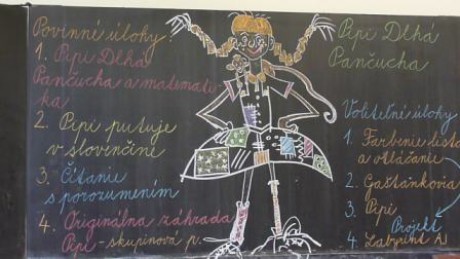 Povinné úlohy:
1. Pipi Dlhá
Pančucha a matemati-
ka
2. Pipi putuje
v slovenčine
3. Čítanie
s porozumením
4. Originálna záhrada
Pipi - skupinová p.
Pipi Dlhá
Pančucha
Voliteľné úlohy
1. Farbenie listo
a otláčanie
2. Gaštankovia
3. Pipi
Projekt
4. Labyrint